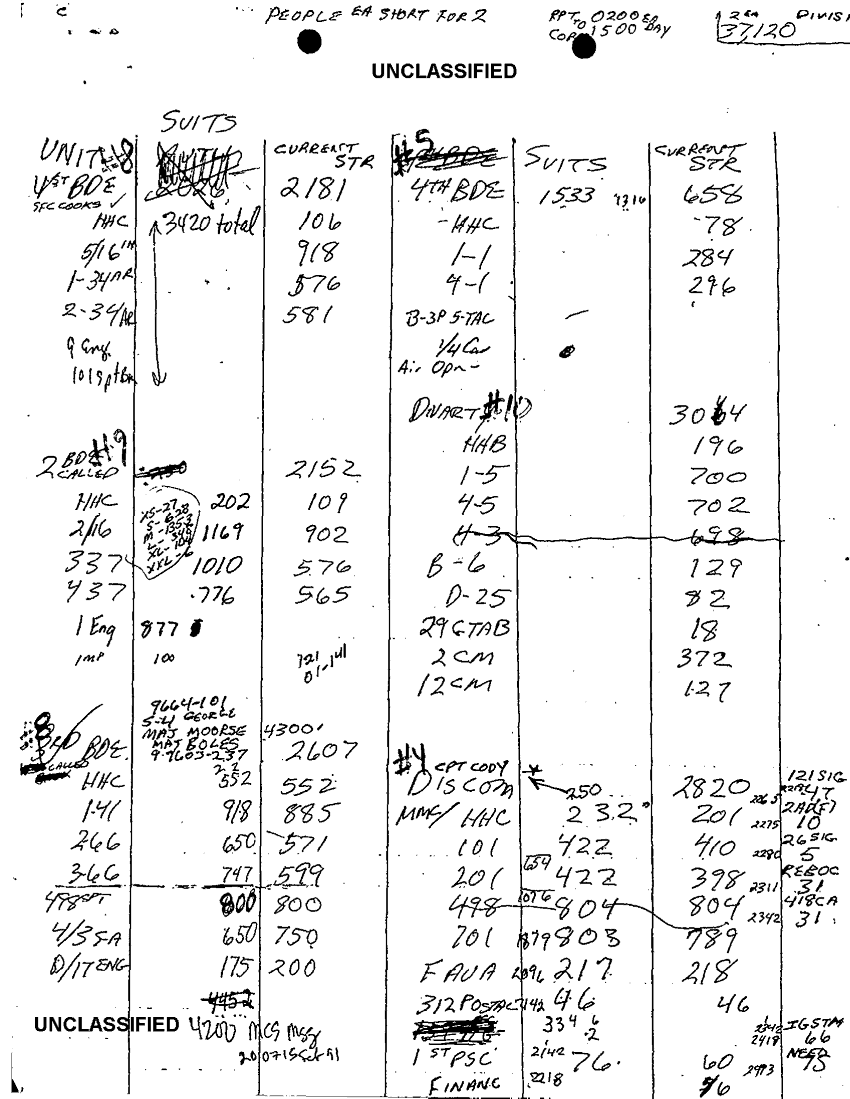 PEOPLE EA SHORT FOR 2
RPT TO 0200 EA
COR 1500 DAY
2 EA DIVISI
37,120
UNCLASSIFIED
SUITS
UNIT #8
CURRENT STR
1ST BDE 2181
SFC COOKS ✓
HHC 3420 total 106
5/16TH 918
1-34 AR 576
2-34 AR 581
9 Eng.
101 Spt Bn
#9
2 BDE 2152
CALLED
HHC 202 109
2/16 1169 902
337 1010 576
437 776 565
XS-27
S-628
M-1353
XXL-6
1 Eng 877
1 MP 100
9664-101
S-4 GEORGE
MAJ MOORSE 4300
MAJ BOLES
9-9603-237
3RD BDE. 2607
CALLED
HHC 552 552
1-41 918 885
2-66 650 571
3-66 747 599
498 SPT 800 800
4/3 SA 650 750
D/17 ENG 175 200
4452
4200 MCG Msg
UNCLASSIFIED
#5
SUITS
CURRENT STR
4TH BDE 1533 1316 658
HHC 78
1-1 284
4-1 296
B-3P 5-TAC
1/4 Cav
Air Opn
DIVARTY #10 3064
HHB 196
1-5 700
4-5 702
4-3 698
B-6 129
D-25 82
29 GTAB 18
2 CM 372
12 CM 127
#4 CPT CODY
DISCOM 250 2820
MMC/ HHC 232 201
101 422 410
201 654 422 398
498 1076 804 804
701 1879 803 789
F AVA 2096 217 218
312 POSTAL 2142 46 46
334 6
.2
1ST PSC 2142 76 60
FINANC 2218 56
121 SIG
47
2265
10
2275
26 SIG
2280 5
REEOC
2311 31
418 CA
2342 31
IGSTM
2342
2418 66
NEED
2493 75